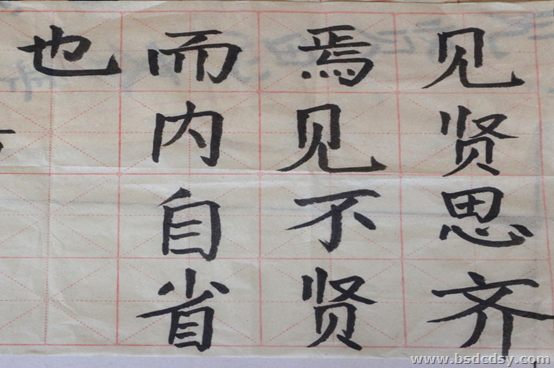 见贤思齐
焉见不贤
而内自省
也
www.bsdcdsy.com